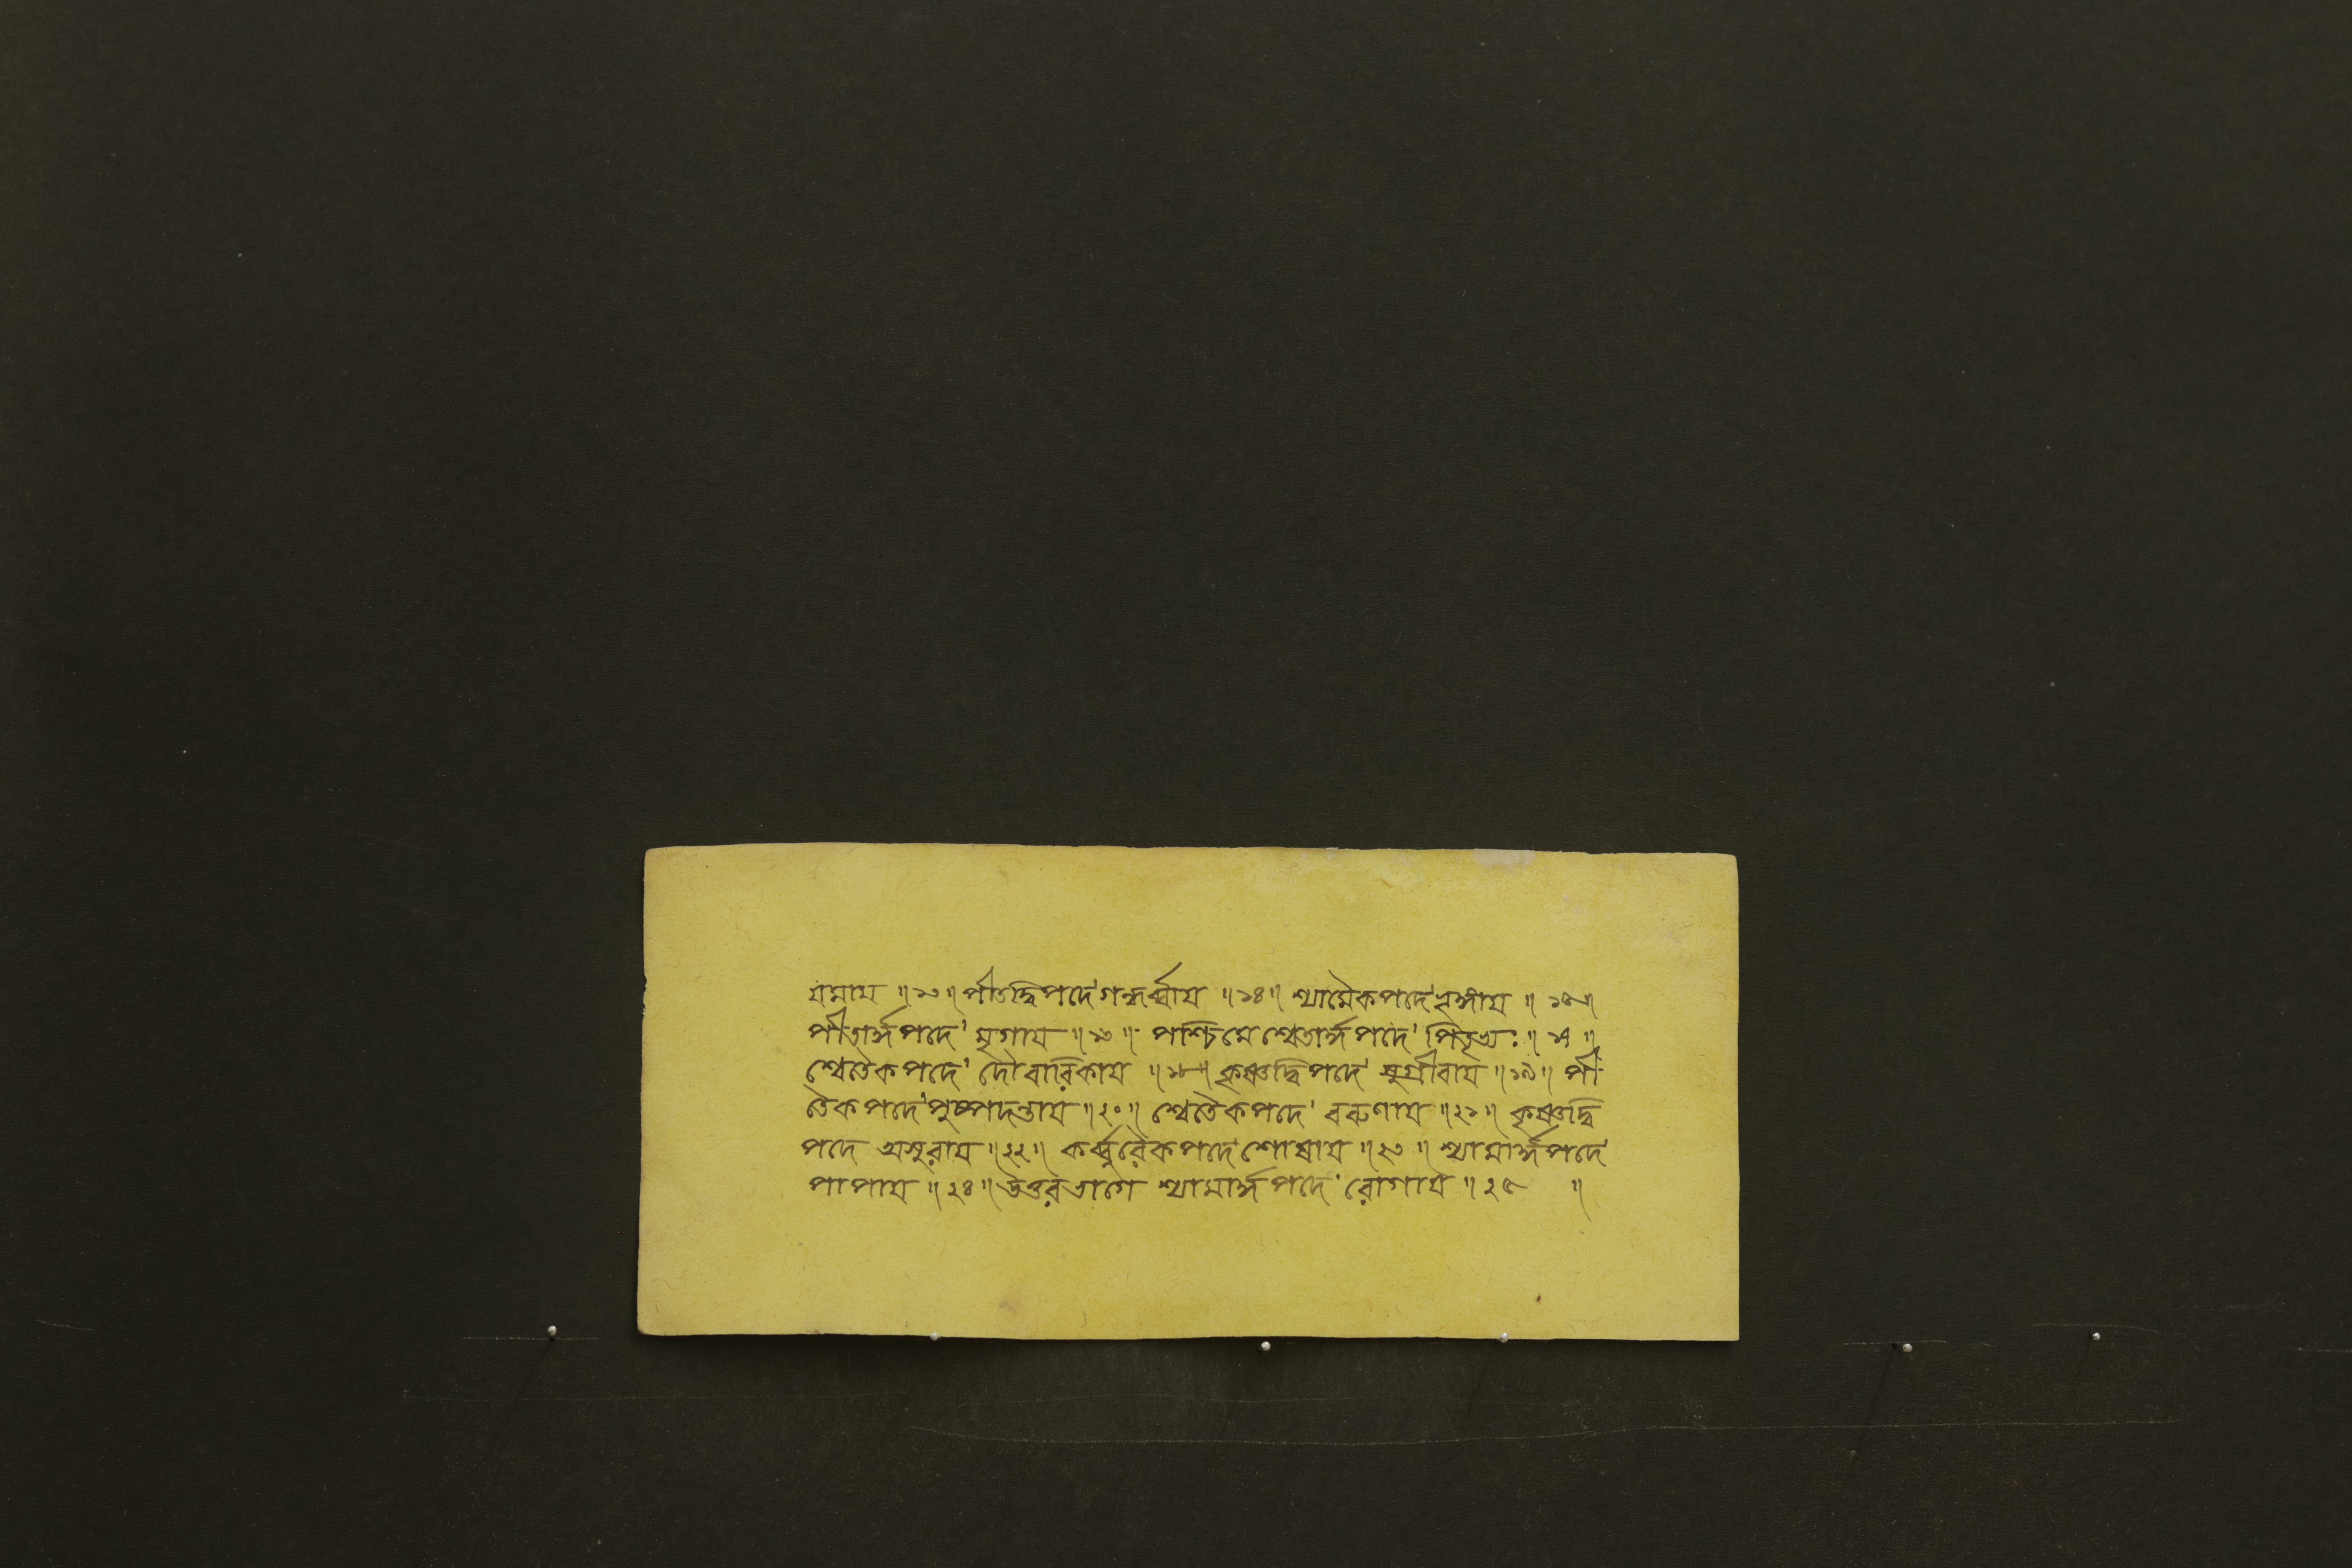 যমায ॥১৩॥ পীতদ্বিপদে গন্ধর্ব্বায ॥১৪॥ শ্যামৈকপদে ভৃঙ্গায ॥১৫॥
পীতার্দ্ধপদে মৃগায ॥১৬॥ পশ্চিমে শ্বেতার্দ্ধপদে পিতৃভ্যঃ ॥১৭॥
শ্বেতৈকপদে দৌবারিকায ॥১৮॥ কৃষ্ণদ্বিপদে সুগ্রীবায ॥১৯॥ পী-
তৈকপদে পুষ্পদন্তায ॥২০॥ শ্বেতৈকপদে বরুণায ॥২১॥ কৃষ্ণদ্বি
পদে অসুরায ॥২২॥ কর্ব্বুরৈকপদে শোষায ॥২৩॥ শ্যামার্দ্ধপদে
পাপায ॥২৪॥ উত্তরভাগে শ্যামার্দ্ধপদে রোগায ॥২৫ ॥